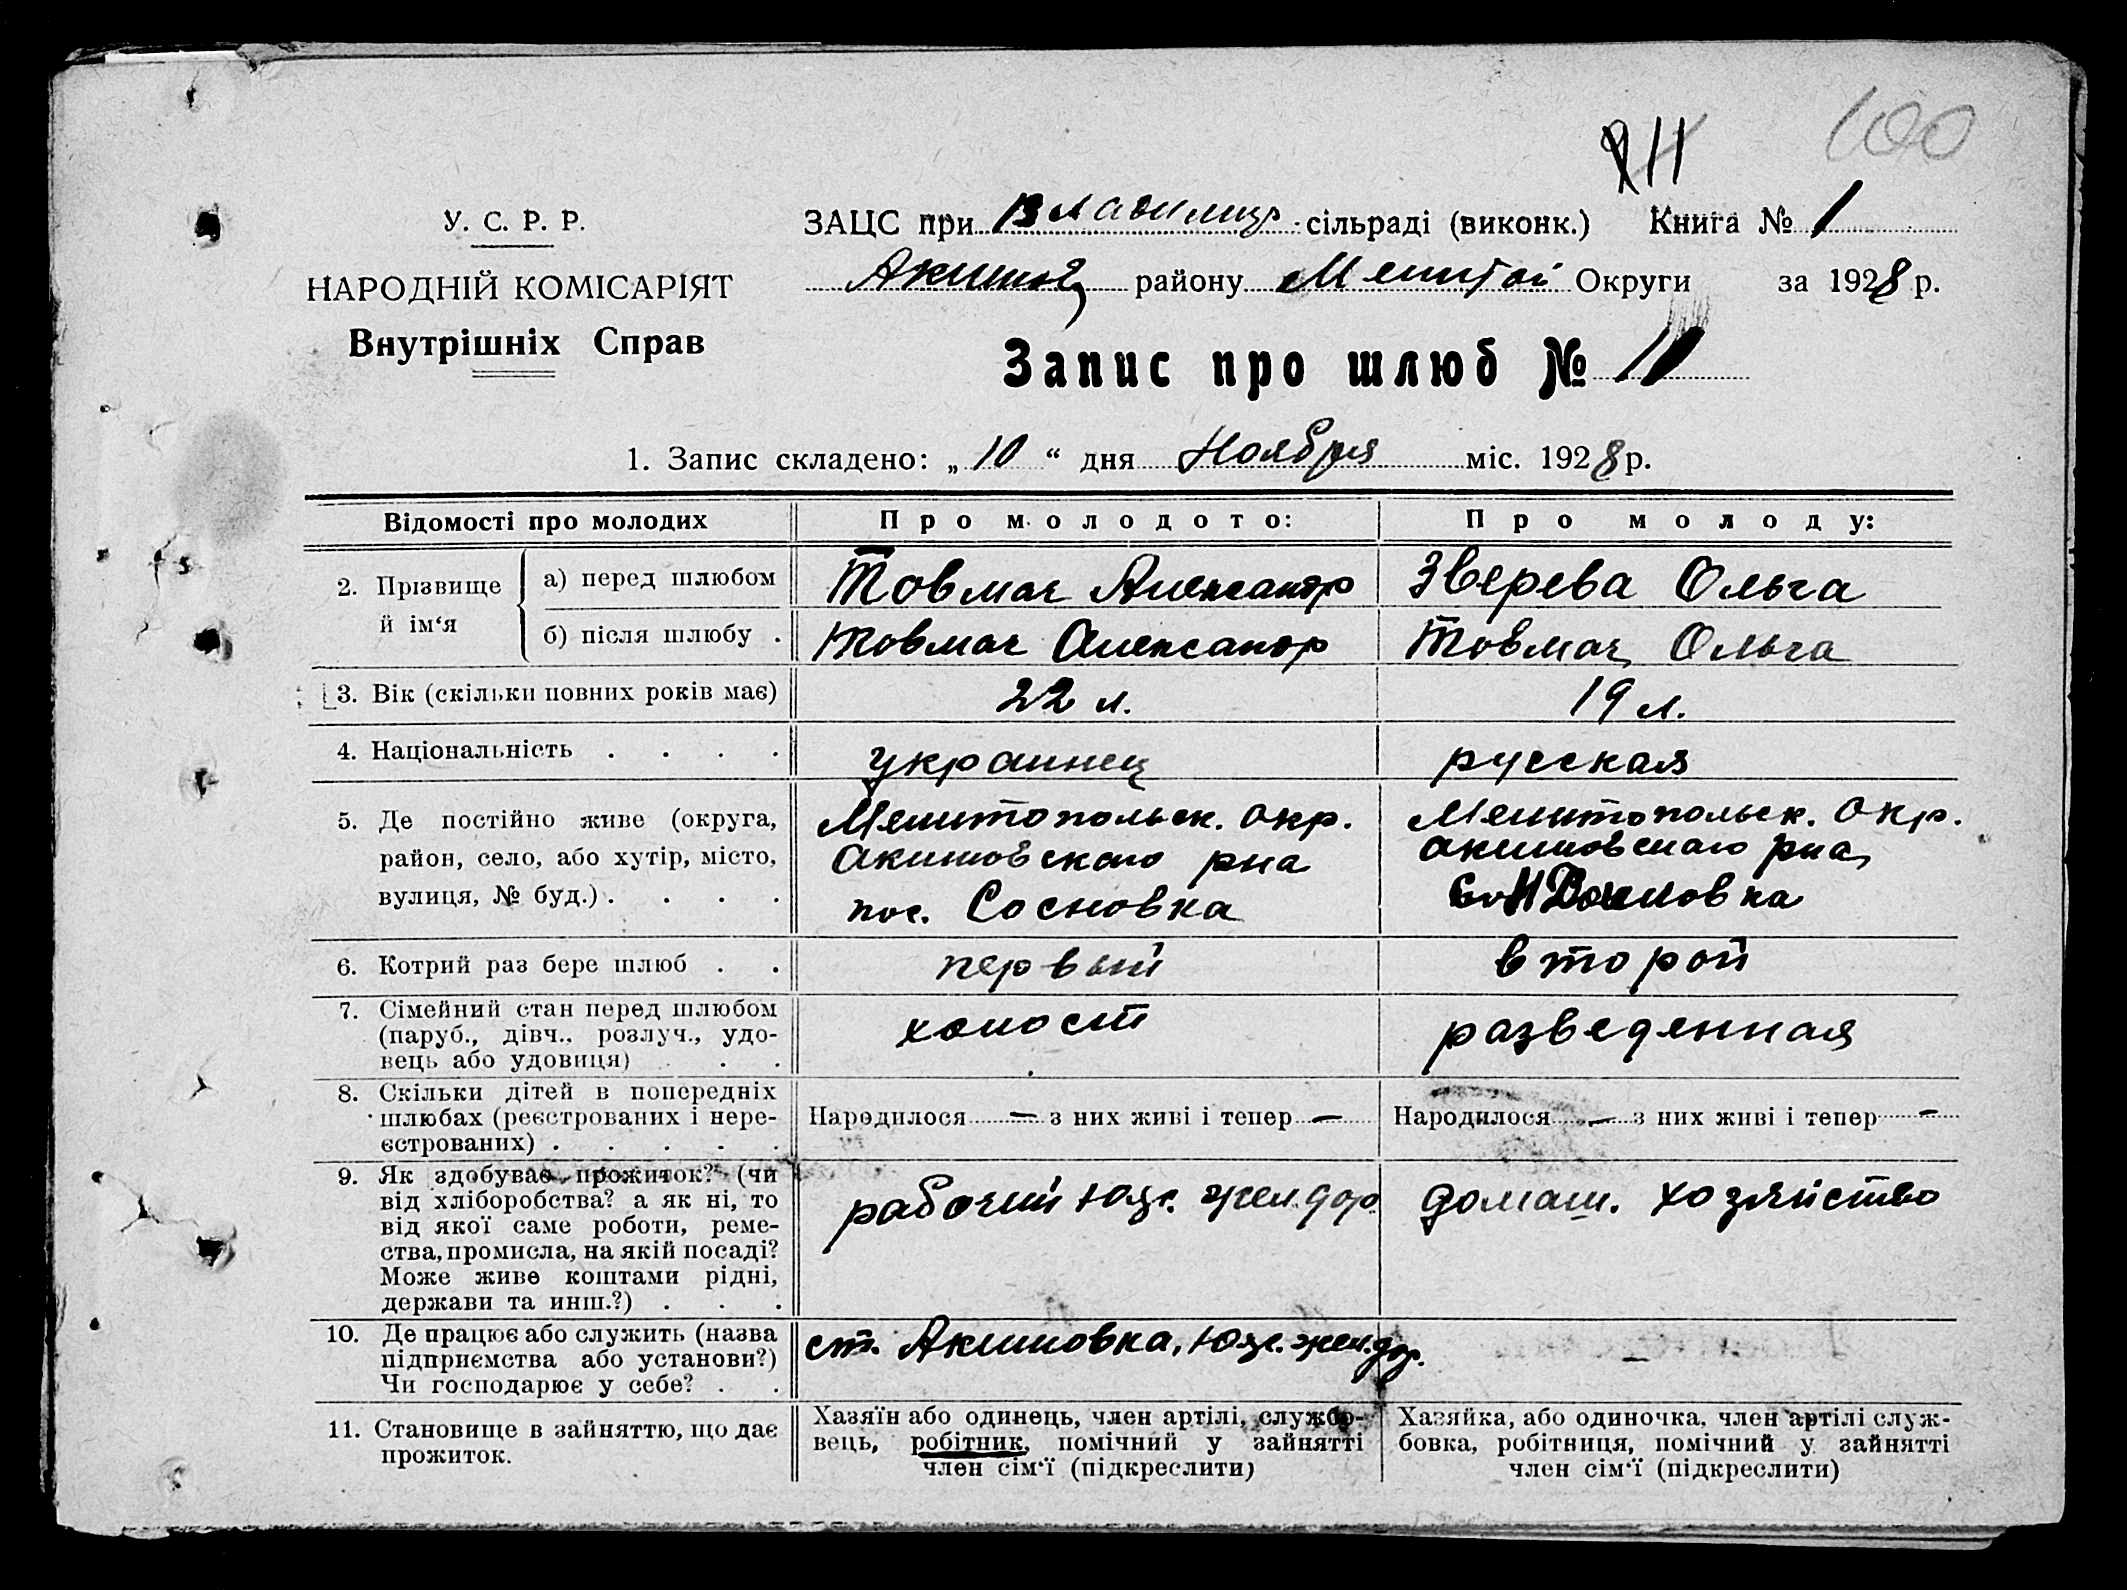 100
11
У. С. Р. Р.
НАРОДНІЙ КОМІСАРІЯТ
Внутрішніх Справ
ЗАЦС при Владимир. сільраді (виконк.) Книга № 1
Акимов району Мелитой Округи за 1928 р.
Запис про шлюб № 11
1. Запис складено: „ 10 “ дня Ноября міс. 1928 р.
Відомості про молодих
Про молодого:
Про молоду:
2. Прізвище й ім‘я
а) перед шлюбом
Товмач Александр
Зверева Ольга
б) після шлюбу .
Товмач Александр
Товмач Ольга
3. Вік (скільки повних років має)
22 л.
19 л.
4. Національність . . . .
украинец
русская
5. Де постійно живе (округа,
район, село, або хутір, місто,
вулиця, № буд.) . . . .
Мелитопольск. окр.
Акимовского рна
пос. Сосновка
Мелитопольск. окр.
Акимовского рна
6. Котрий раз бере шлюб . .
первый
второй
7. Сімейний стан перед шлюбом
(паруб., дівч., розлуч., удо-
вець або удовиця) . . .
холост
разведенная
8. Скільки дітей в попередніх
шлюбах (реєстрованих і нере-
єстрованих) . . . . .
Народилося — з них живі і тепер —
Народилося — з них живі і тепер —
9. Як здобуває прожиток? (чи
від хліборобства? а як ні, то
від якої саме роботи, реме-
ства, промисла, на якій посаді?
Може живе коштами рідні,
держави та инш.?) . . .
рабочий Южн. жел. дор.
домаш. хозяйство
10. Де працює або служить (назва
підприємства або установи?)
Чи господарює у себе? . .
ст. Акимовка, Южн. жел. дор.
—
11. Становище в зайняттю, що дає
прожиток.
Хазяїн або одинець, член артілі, службо-
вець, робітник, помічний у зайнятті
член сім‘ї (підкреслити)
Хазяйка, або одиночка, член артілі служ-
бовка, робітниця, помічний у зайнятті
член сім‘ї (підкреслити)